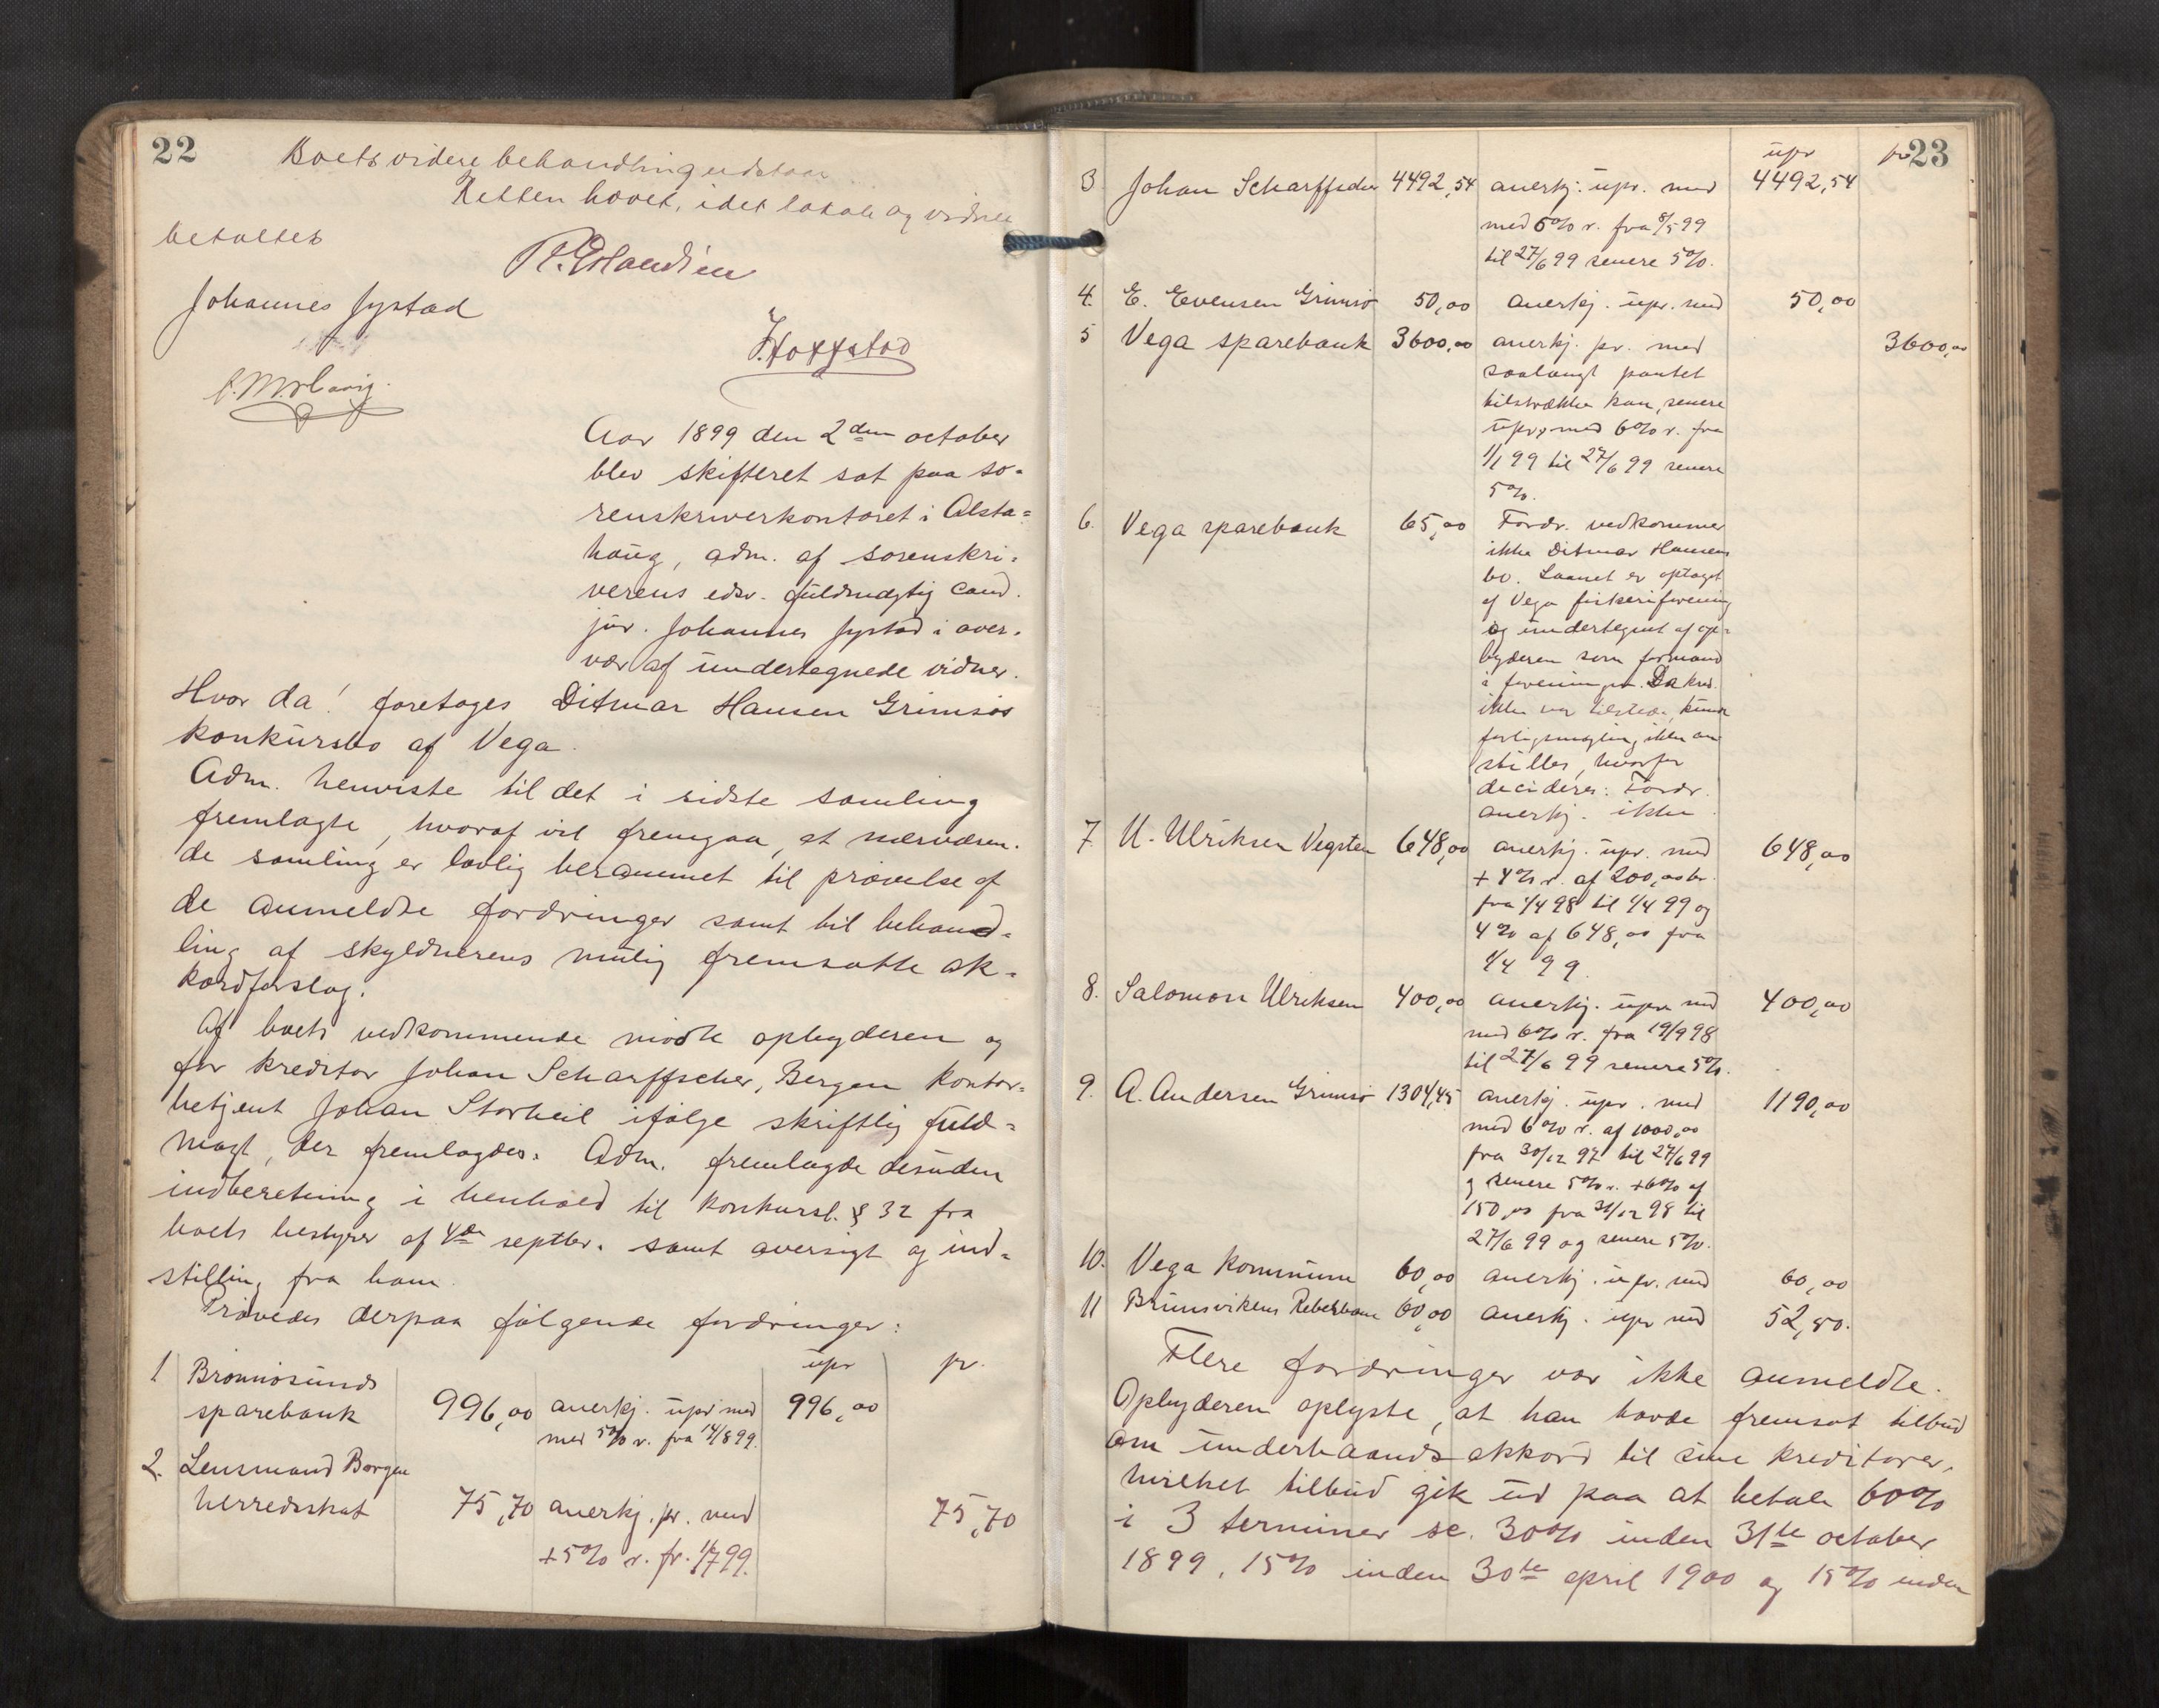 22
Boets videre behandling udstaar.
Retten hævet, idet lokale og vidner
betaltes
R. Erlandsen
Johannes Jystad
Hoffstad
Aar 1899 den 2den october
blev skifteret sat paa so-
renskriverkontoret i Alsta=
haug, adm. af sorenskri-
verens edsv. fuldmægtig cand.
jur. Johannes Jystad i over-
vær af undertegnede vidner.
Hvor da! foretoges Ditmar Hansen Grimsøs
konkursbo af Vega.
Adm. henviste til det i sidste samling
fremlagte, hvoraf vil fremgaa, at nærværen-
de samling er lovlig berammet til prøvelse af
de anmeldte fordringer samt til behand-
ling af skyldnerens mulig fremsatte ak-
kordforslag.
Af boets vedkommende mødte opbyderen og
for kreditor Johan Scharffscher, Bergen kontor-
betjent Johan Storheil ifølge skriftlig fuld-
magt, der fremlagdes. Adm. fremlagde desuden
indberetning i henhold til konkursl. § 32 fra
boets bestyrer af 4de septbr. samt oversigt og ind-
stilling fra ham.
Prøvedes derpaa følgende fordringer:
upr pr.
1 Brønnøsunds
sparebank 996,00 anerkj. upr med 996,00
med 5% r. fra 14/8 99.
2. Lensmand Borgen
herredsskat 75,70 anerkj. pr. med 75,70
+5% r. fr. 1/7 99.
23
upr pr
3 Johan Scharffscher 4492,54 anerkj. upr. med 4492,54
med 6% r. fra 8/5 99
til 27/6 99 senere 5%.
4. E. Evensen Grimsø 50,00 anerkj. upr. med 50,00
5 Vega sparebank 3600,00 anerkj. pr. med 3600,00
saalangt pantet
tilstrække kan, senere
upr, med 6% r. fra
1/1 99 til 27/6 99 senere
5%.
6. Vega sparebank 65,00 Fordr. vedkommer
ikke Ditmar Hansens
bo. Laanet er optaget
af Vega fiskeriforening
og undertegnet af op-
byderen som formand
i foreningen. Da kred.
ikke var tilstede, kunde
forligsmægling ikke an
stilles, hvorfor
decideres: Fordr.
anerkj. ikke.
7 U. Ulriksen Vegsten 648,00 anerkj. upr. med 648,00
+ 4% r. af 200,00 kr.
fra 1/4 98 til 1/4 99 og
4% af 648,00 fra
1/4 99.
8. Salomon Ulriksen 400,00 anerkj. upr med 400,00
med 6% r. fra 19/9 98
til 27/6 99 senere 5%.
9. A. Andersen Grimsø 1304,45 anerkj. upr. med 1190,00
med 6% r. af 1000,00
fra 30/12 97 til 27/6 99
og senere 5% r. +6% af
150,00 fra 31/12 98 til
27/6 99 og senere 5%.
10. Vega kommune 60,00 anerkj. upr. med 60,00
11 Brunsvikens Reberbane 60,00 anerkj. upr med 52,80.
Flere fordringer var ikke anmeldte.
Opbyderen oplyste, at han havde fremsat tilbud
om underhaandsakkord til sine kreditorer,
hvilket tilbud gik ud paa at betale 60%
i 3 terminer sc. 30% inden 31te october
1899, 15% inden 30te april 1900 og 15% inden